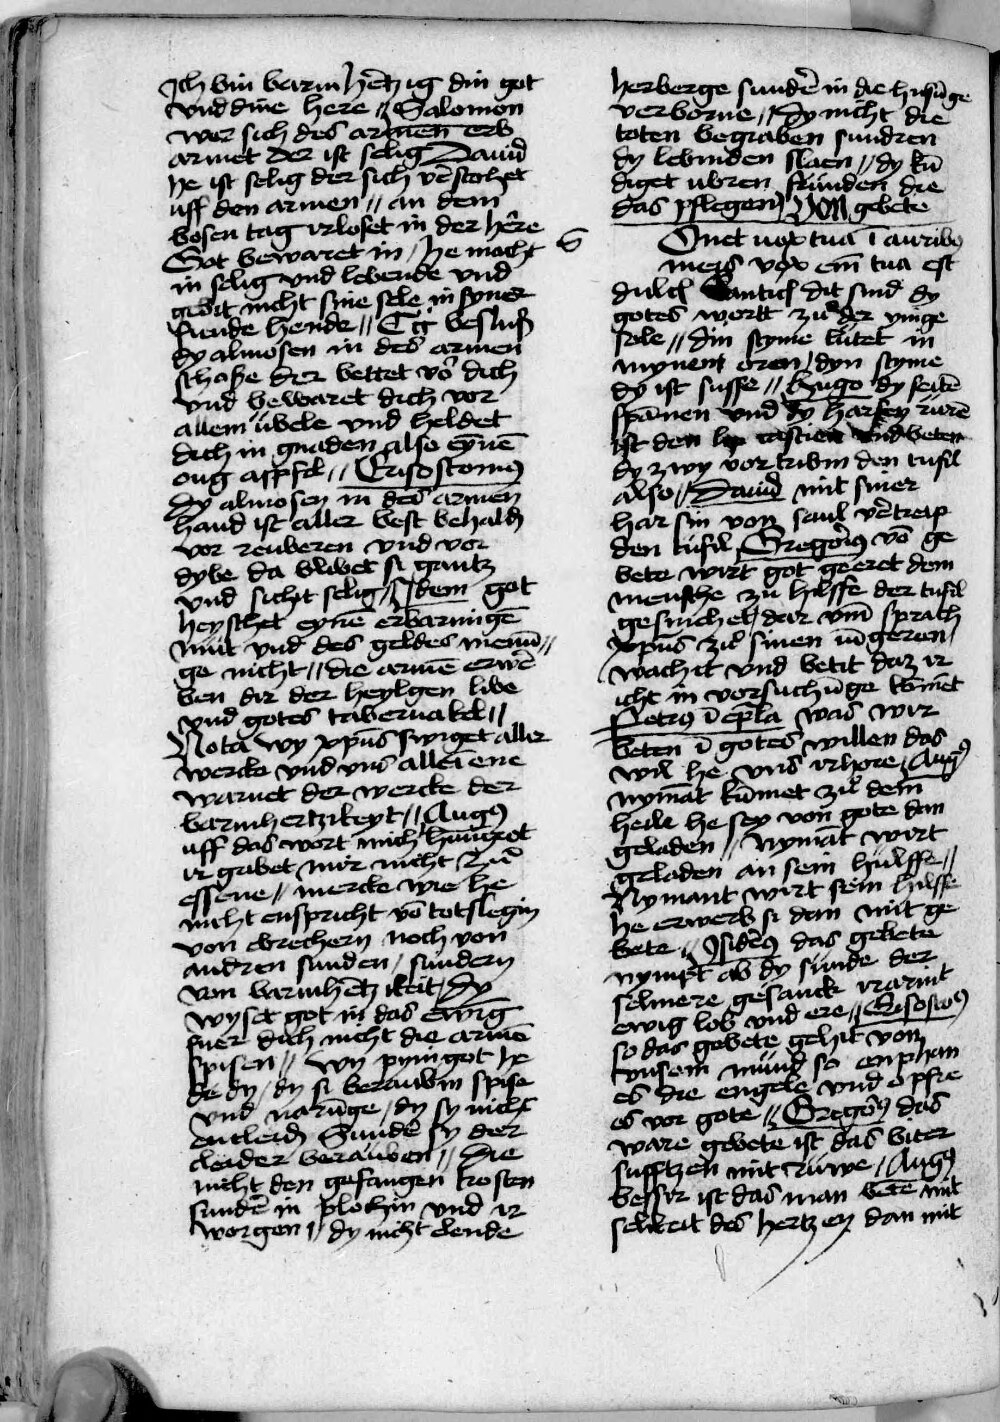 Ich bin barmhertzig din got
vnd dine here // Salomon
wer sich des armen erb
armet der ist selig Dauid
he ist selig der sich vorstehet
uff den armen // an dem
bosen tag irloset in der here
Got bewaret in / he macht
in selig vnd lebende vnd
gebit nicht sine sele in syner
fiende hende // Eci beslusß
dy almosen in des armen
schaße der bettet vor dich
vnd bewaret dich vor
allem ubele vnd heldet
dich in gnaden also eynē
oug appfel // Crisostomus
Dy almosen in des armen
hand ist aller best behaldē
vor reuberen vnd vor
dybe da blibet si gantz
vnd sicht selig / Idem got
heyschet eynē erbarmigē
mut vnd des geldes menū //
ge nicht // die armē erwer
ben dir der heylgen libe
vnd gotes tabernakel //
Nota wy xpūs swiget aller
wercke vnd vns allei ene
warnet der wercke der
barmhertzikeyt // Augus
uff das wort mich hungret
ir gabet mir nicht zu
essene // mercke wie he
nicht enspricht vō totslegin
von ebrechern noch von
andren sunden / sundern
von barmhētzikeit / Dy
wyset got in das ewig
fuer dich nicht die armē
spisen // wy pynigot he
de dy / dy si berauben spise
vnd narūge / dy sy nicht
entleidē Sunder sy der
cleider berauben // Die
nicht den gefangen trosten
sundē in plochin vnd ir
worgen // dy nicht elende
herberge sundē in die husunge
verborne // Dy nicht die
toten begraben sundren
dy lebinden slaen // dy ku
diget ubren frunden die
das pflegen Von gebete
Onet vox tua ī auribus
meis vox em tua est
dulcis Canticis dit sind dy
gotes wortt zu der ynige
sele // din styme lutet in
mynen oren / dyn styme
dy ist susse // Hugo dy seitē
spannen vnd dy harfen rurē
ist den casteien vnd beten
dy zwy vortribin den tufil
also // Dauid mit siner
har fin von saul vertreip
den tufil Gregorius vō ge
bete wirt got geeret dem
mensche zu hilffe der tufil
geswichet / dar vm sprach
xpūs zu sinen iūgeren /
wachit vnd betit daz ir
icht in vorsuchūge komet
Petrus ī epla was wir
beten ī gotes willen das
wil he vns irhore / Augus
nymāt kumet zu dem
heile he sey von gote dan
geladen // nymāt wirt
geladen an sein hulffe //
Nymant wirt sein hilffe
he erwerb si dan mit ge
bete // Isiderus das gebete
nympt ab dy sunde der
selmere gesanck irarnit
ewig lob vnd ere // Crisostus
so das gebete gehit vom
vnsem mund so enphan
es die engele vnd opfre
es vor gote // Gregorius das
ware gebete ist das biter
sufftzen mit ruwe / Augus
besser ist das man bete mit
seltikeit des hertzen dan mit